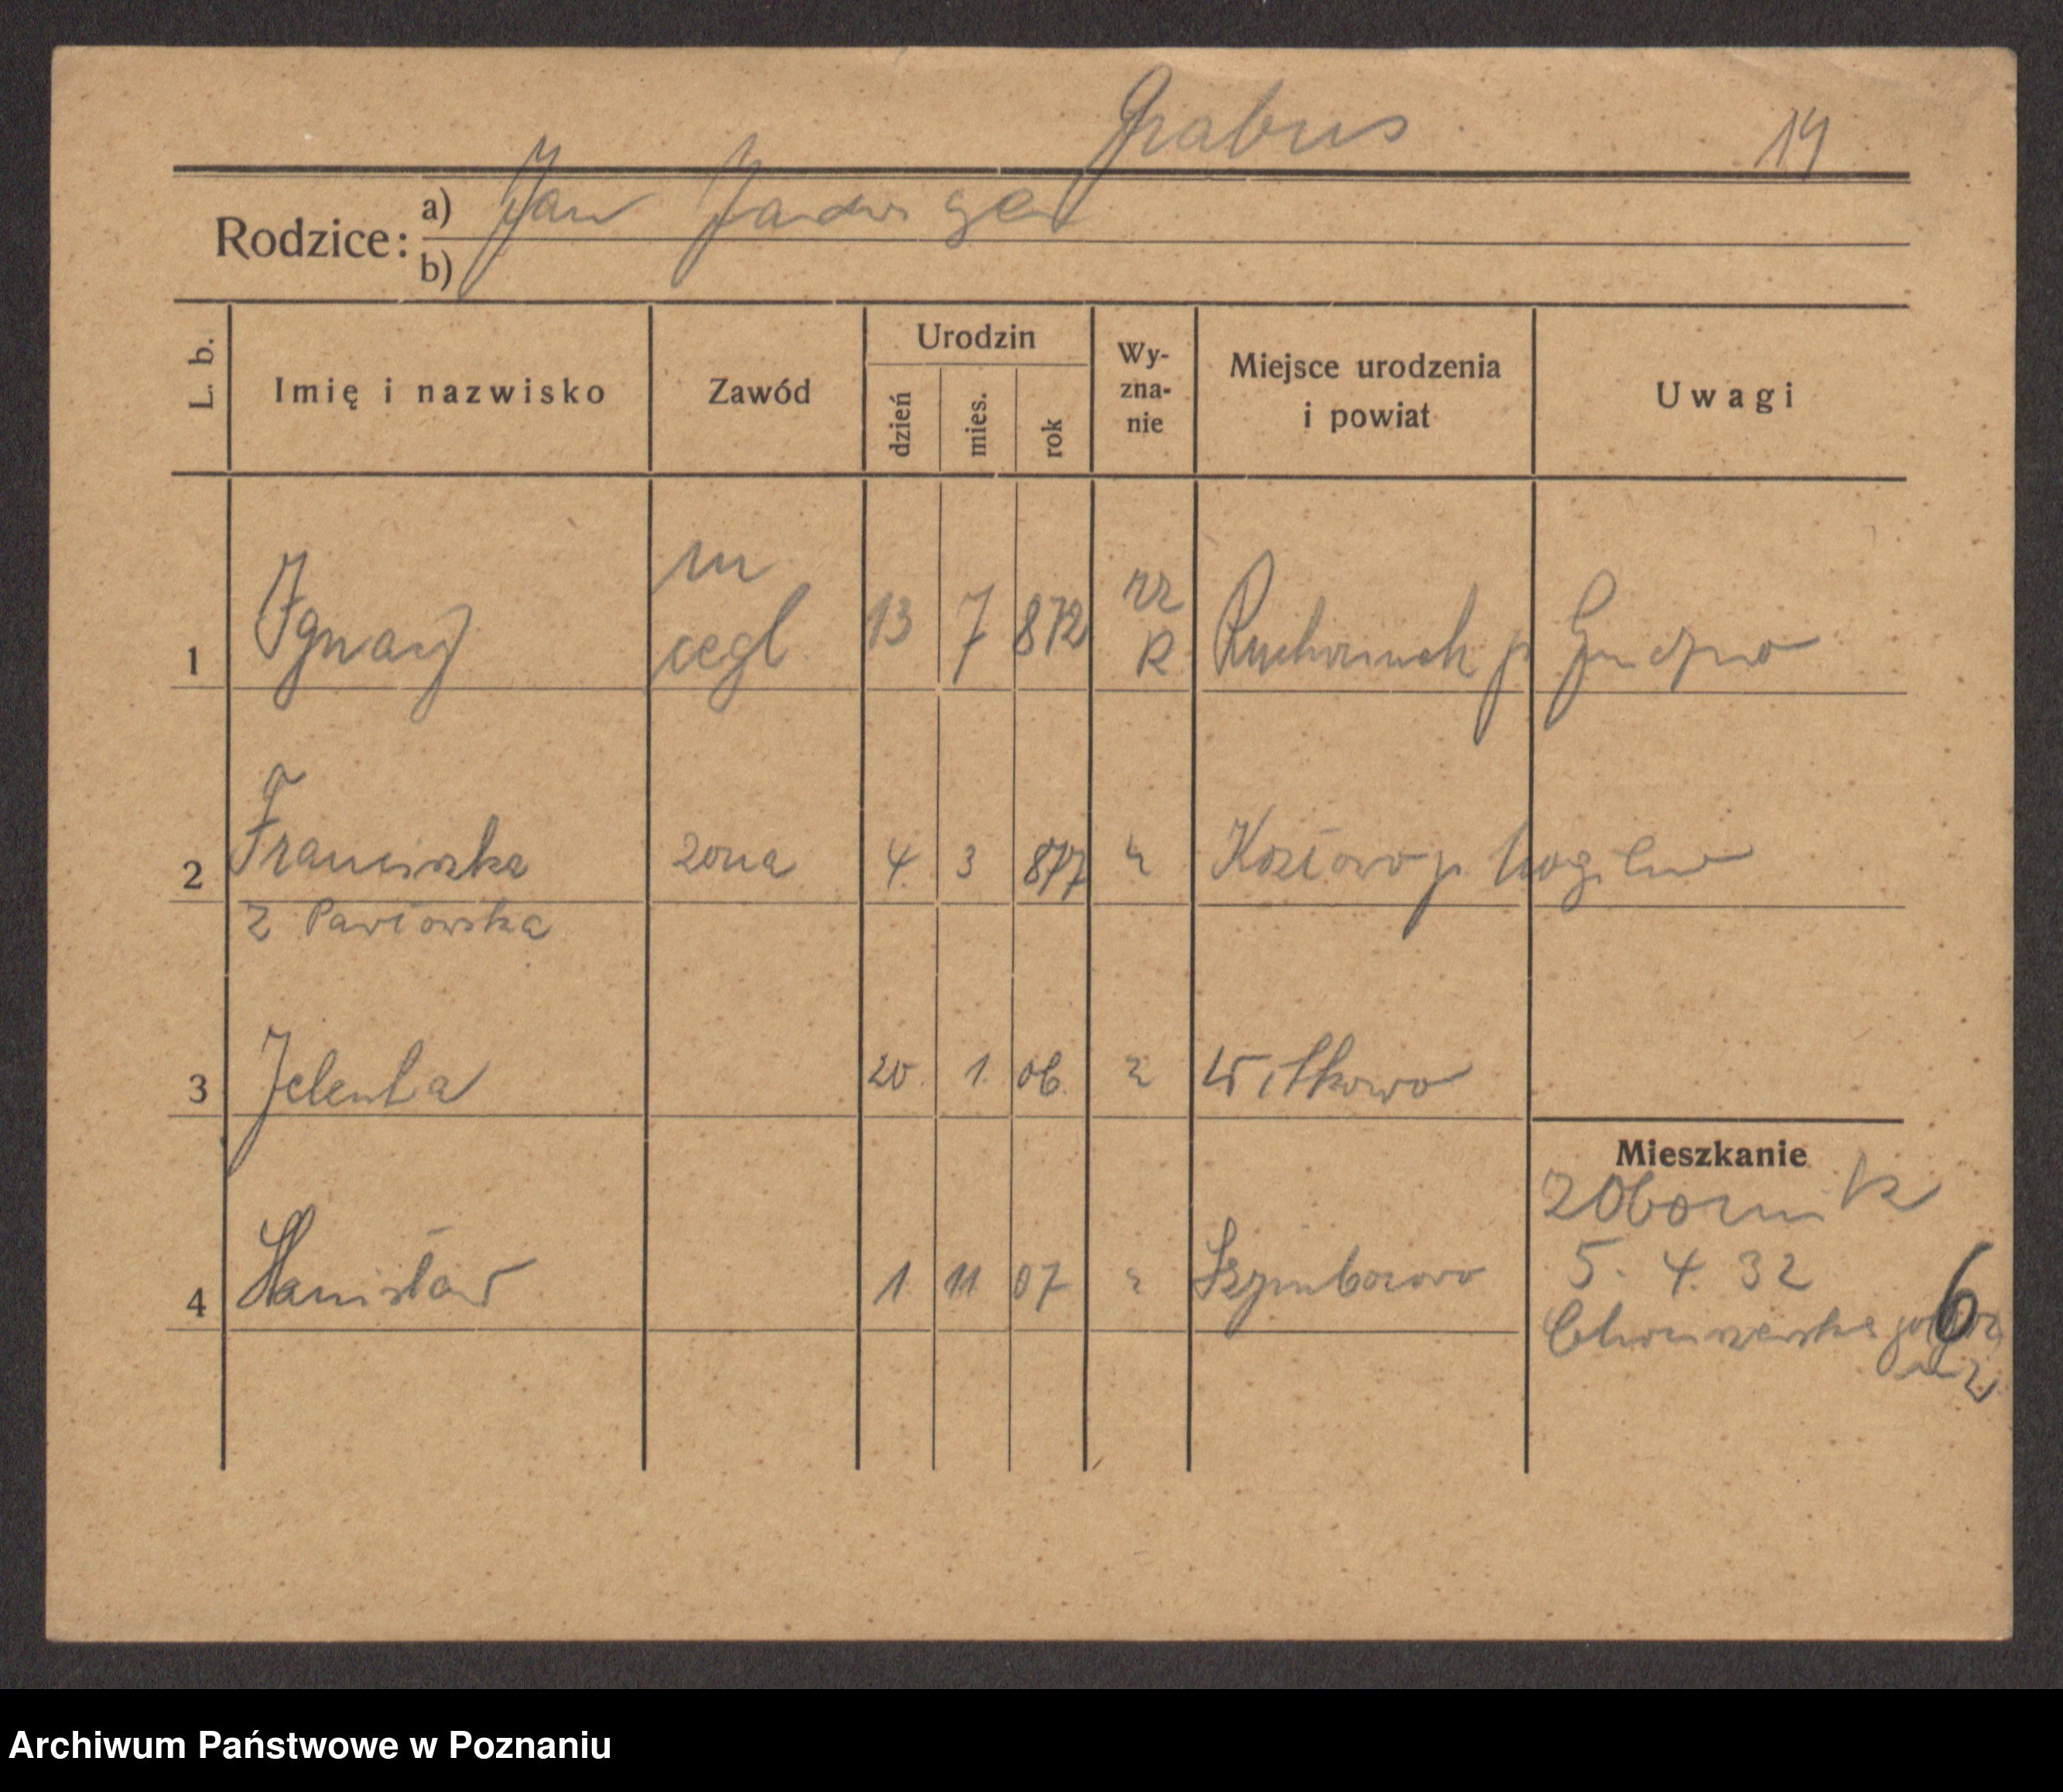 Grabus 14
Rodzice: a) Jan Jadwiga
b)
L. b. Imię i nazwisko Zawód Urodzin dzień mies. rok Wy-zna-nie Miejsce urodzenia i powiat Uwagi
1 Ignacy m cegl 13 7 872 rz K p Gniezno
2 Franciszka żona 4. 3 877 Kozłowo p. Mogilno
z Pawłowska
3 Jelenta 20. 1. 06. Witkowo
4 Stanisław 1. 11. 07 Szymborowo
Mieszkanie
z Obornik
5. 4. 32
6